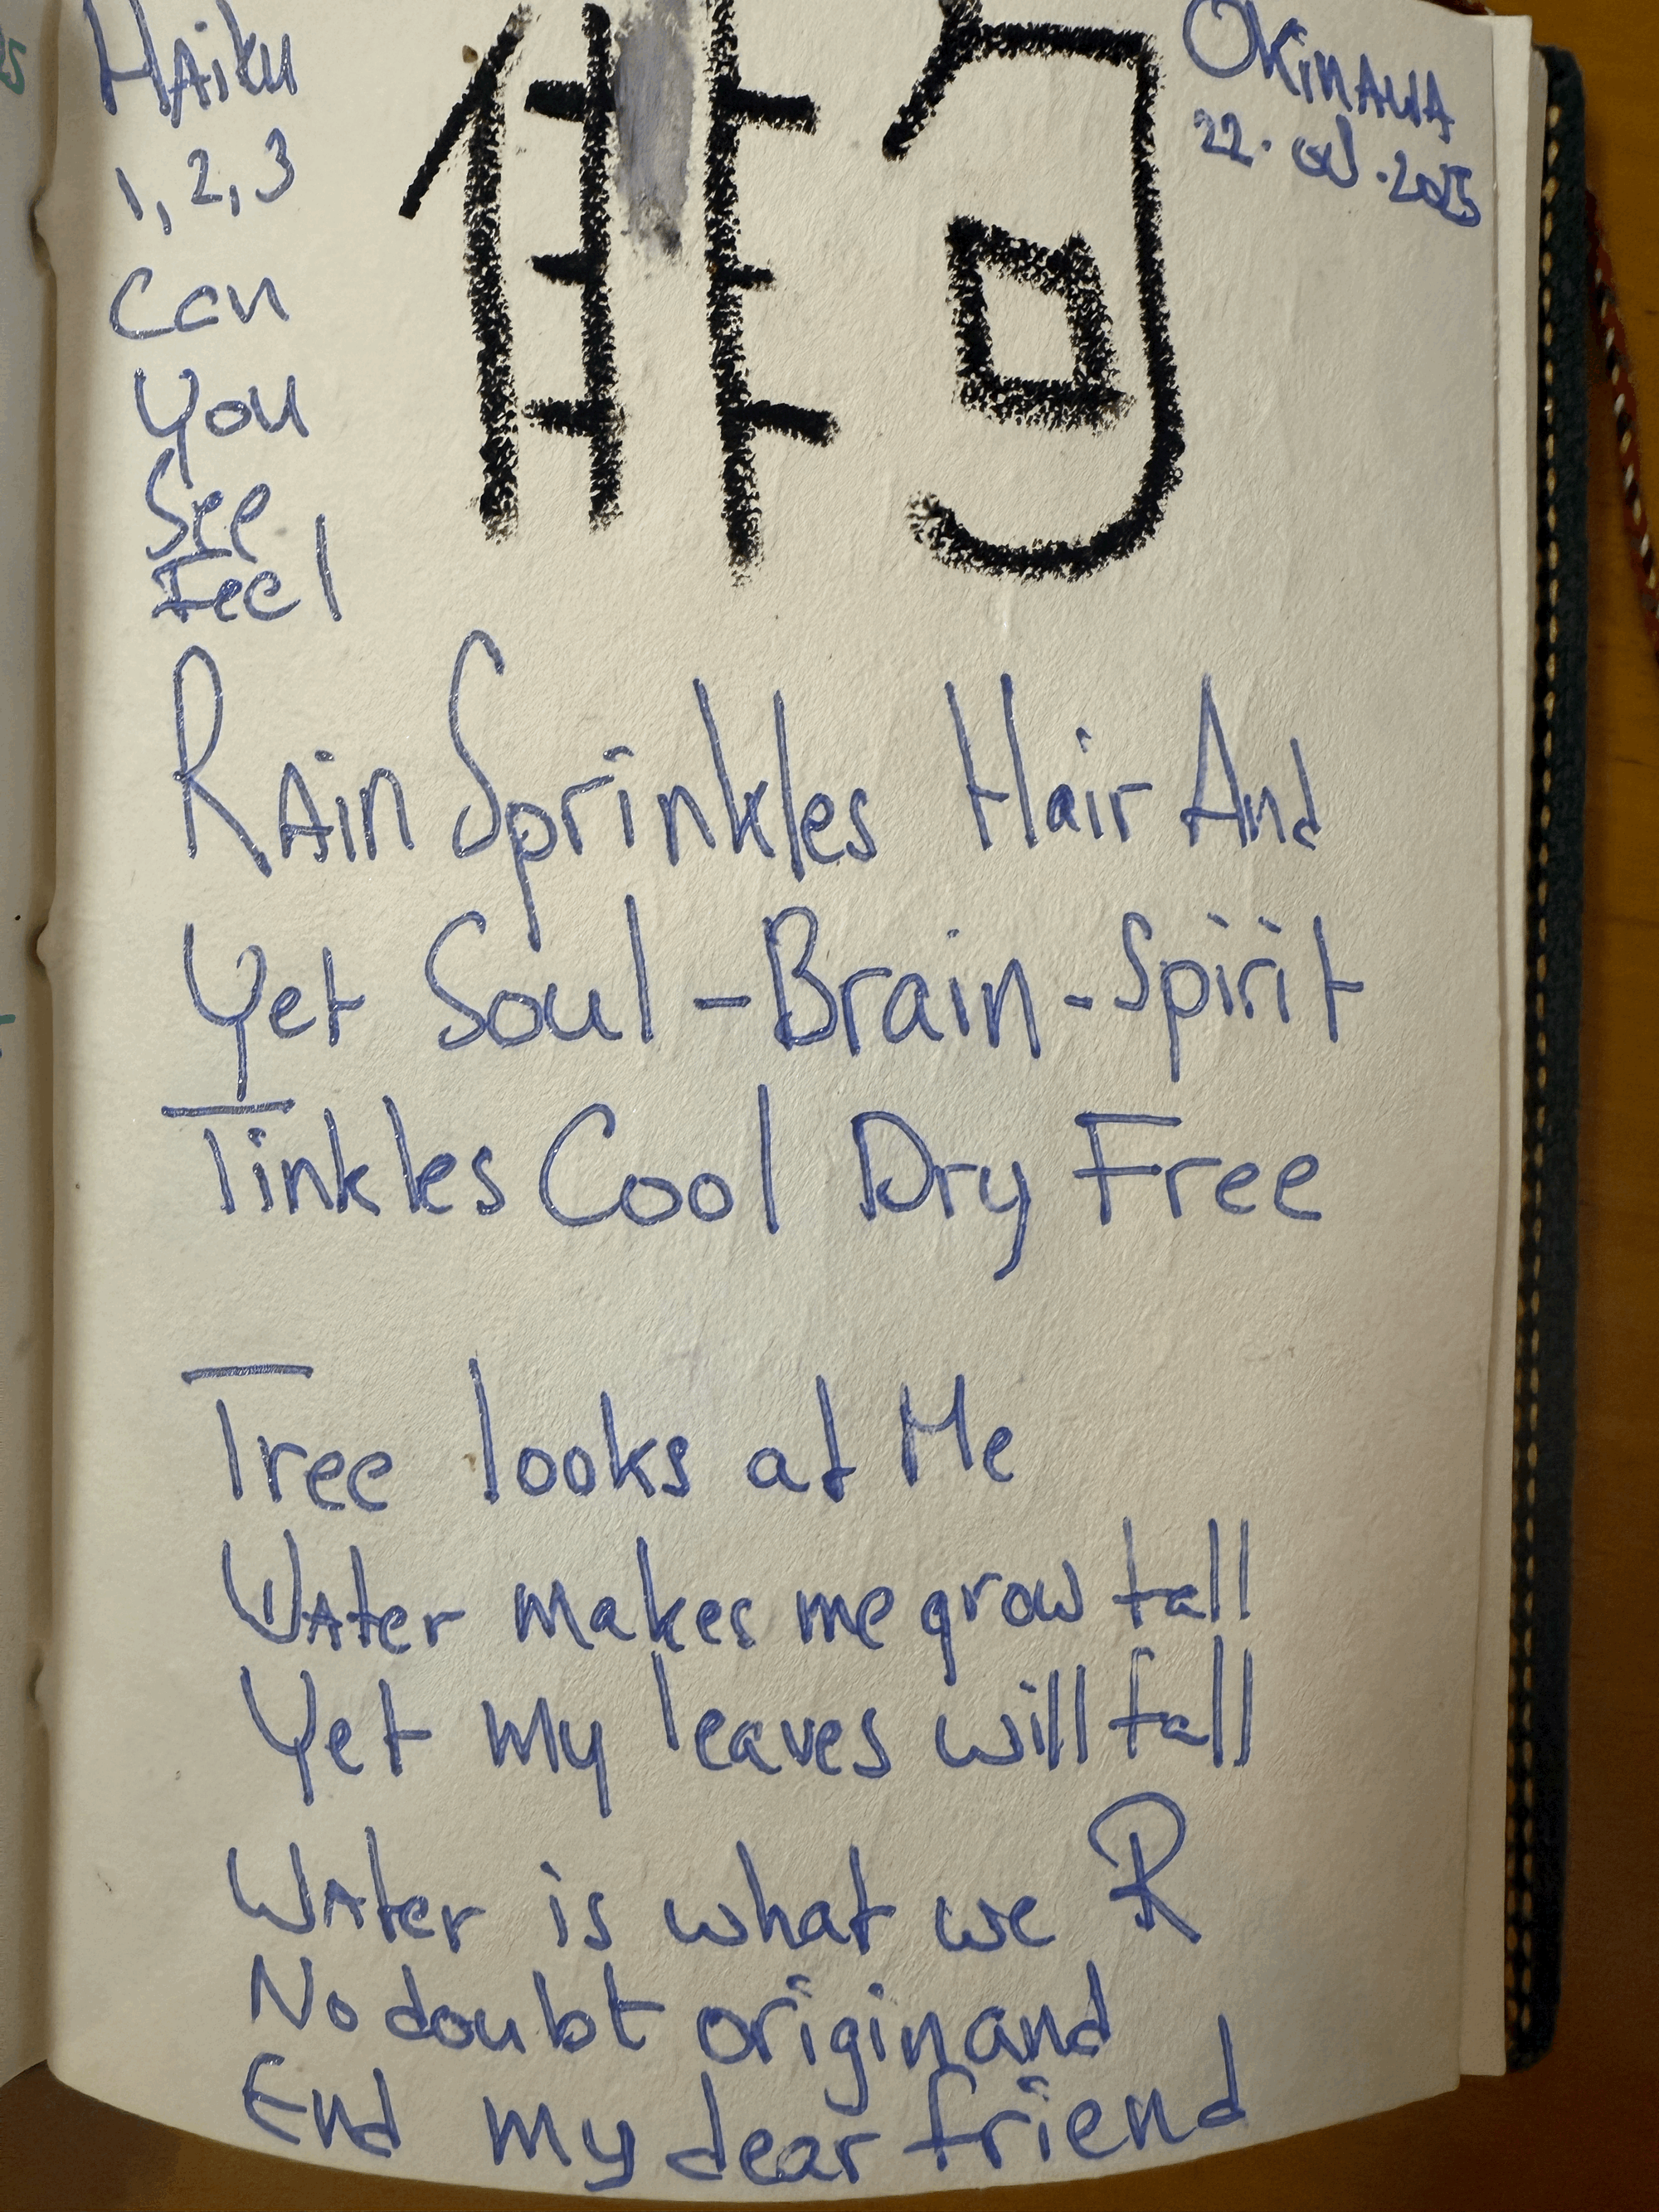 Haiku
1, 2, 3
Can
You
See
Feel
俳句
OKINAWA
22. .2025
RAin Sprinkles Hair And
Yet Soul-Brain-Spirit
Tinkles Cool Dry Free
Tree looks at Me
WAter makes me grow tall
Yet my leaves will fall
WAter is what we R
No doubt origin and
End my dear friend